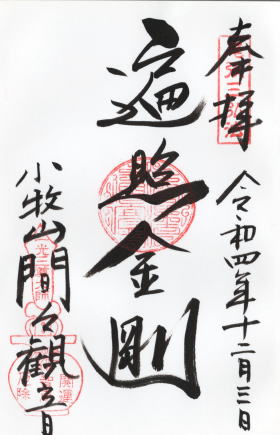 奉拝
令和四年十二月三日
遍照金剛
小牧山間々觀音
開運